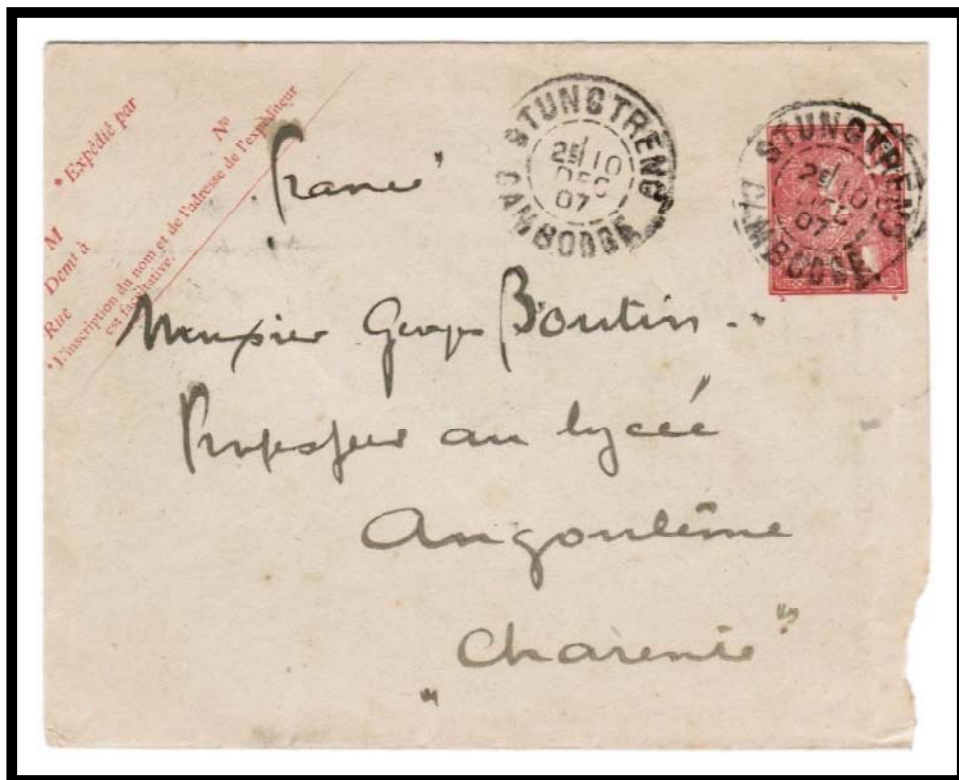 * Expédié par
M N°
Demt à
Rue
* L'inscription du nom et de l'adresse de l'expéditeur
est facultative.
"France"
STUNG TRENG
10
DEC
07
CAMBODGE
STUNG TRENG
10
DEC
07
CAMBODGE
Monsieur Georges Boutin
Professeur au lycée
Angoulême
"Charente"